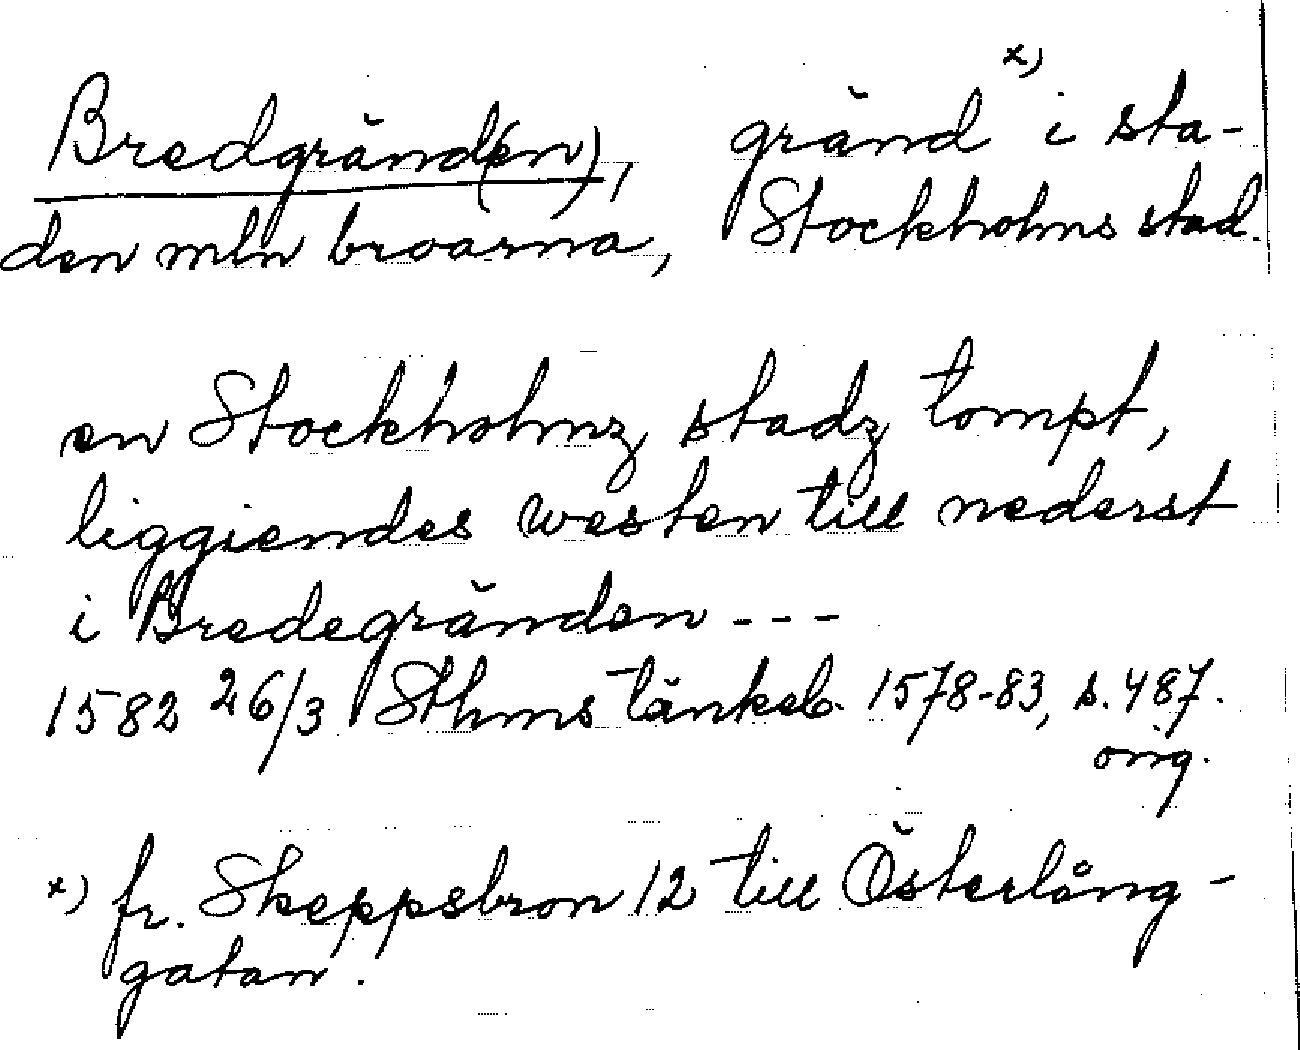 Bredgränd(en), gränd x) i sta-
den mln broarna, Stockholms stad.
en Stockholmz stadz tompt,
liggiendes westen till nederst
i Bredegränden ---
1582 26/3 Sthms tänkeb. 1578-83, s. 487.
orig.
x) fr. Skeppsbron 12 till Österlång-
gatan.